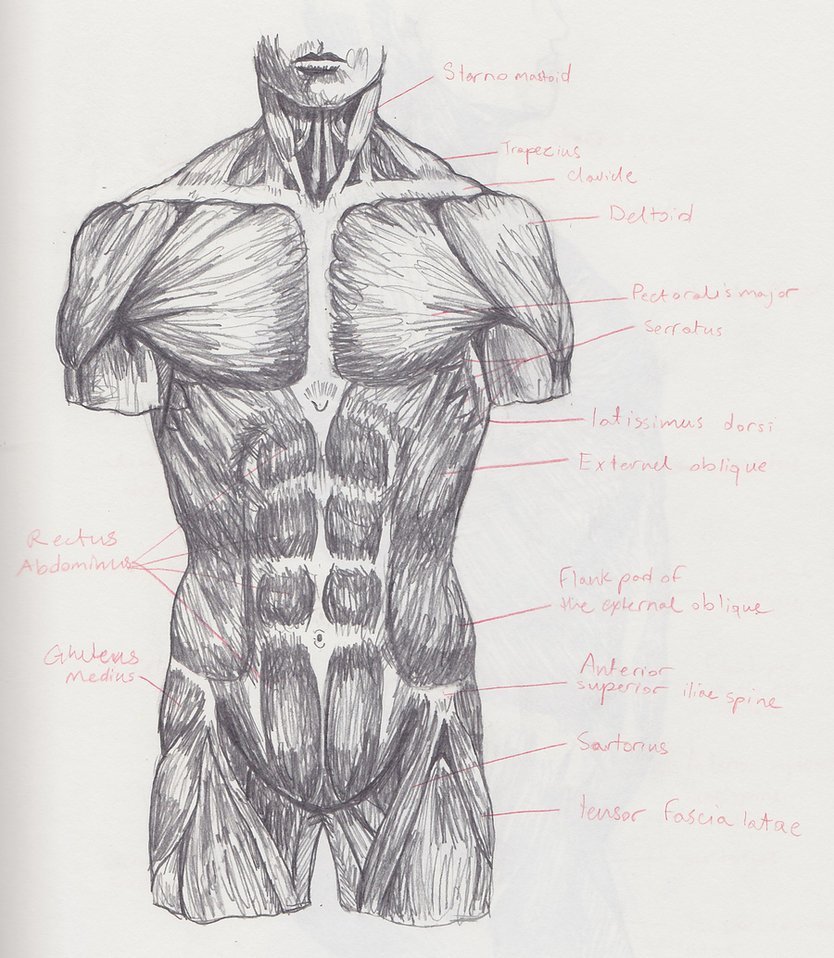 Sterno mastoid
Trapezius
clavicle
Deltoid
Pectoralis major
Serratus
latissimus dorsi
External oblique
Rectus
Abdominus
Flank pad of
the external oblique
Gluteus
Medius
Anterior
superior iliac spine
Sartorius
tensor fascia latae